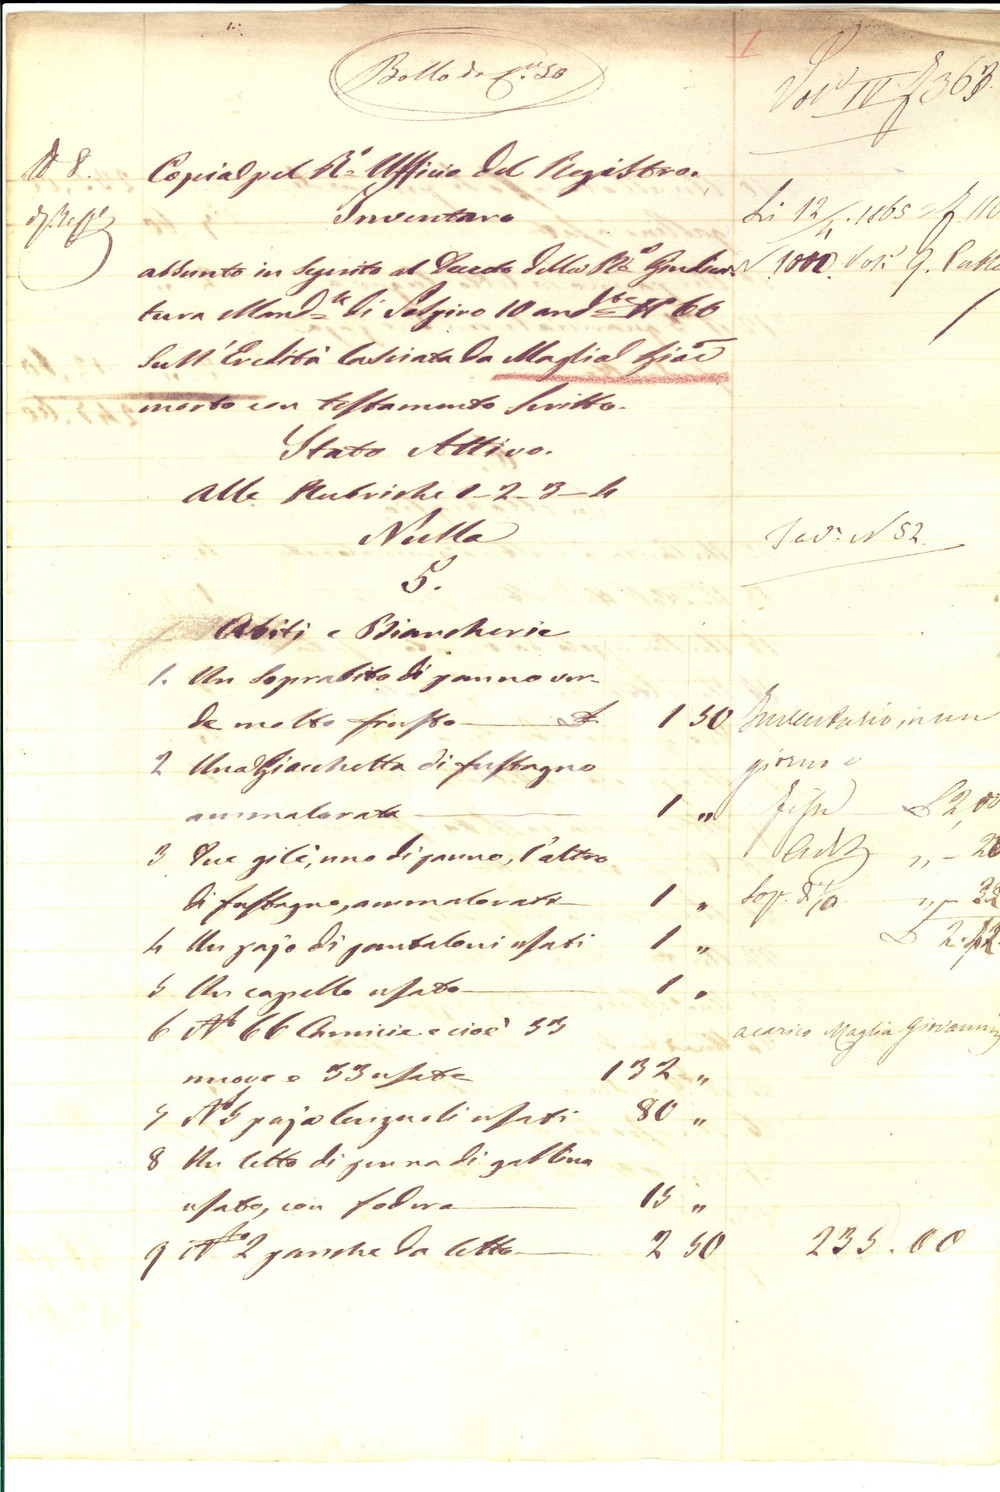 Bollo da C.mi 50
Vol. IV f 363
N 8.
Copia pel R.o Ufficio del Registro.
Inventaro
Li 12/4 1865 = f. 110
assunto in seguito al Decreto della R.a Giudica-
N 1000 Vol. 9.
tura Mand.le di 10 and.te N.o 66
Sull'Eredità lasciata da Maglia Gia
morto con testamento scritto.
Stato Attivo.
Alle Rubriche 1-2-3-4
Nulla
N 52.
5.
Abiti e Biancherie
1. Un soprabito di panno ver-
de molto frusto £ 1 50
Inventario in un
2 Una Giacchetta di fustagno
giorno
ammalorata 1 "
Fisso £ 2,00
3 Due gilè, uno di panno, l'altro
" - 20
di fustagno, ammalorati 1 "
4 Un pajo di pantaloni usati 1 "
£ 2.
5 Un capello usato 1 "
6 N.o 66 Camicie e cioè 33
a carico Maglia Giovanni
nuove e 33 usate 132 "
7 N.o 5 paja lenzuoli usati 80 "
8 Un letto di penna di gallina
usato, con fodera 15 "
9 N.o 2 panche da letto 2 50
235.00